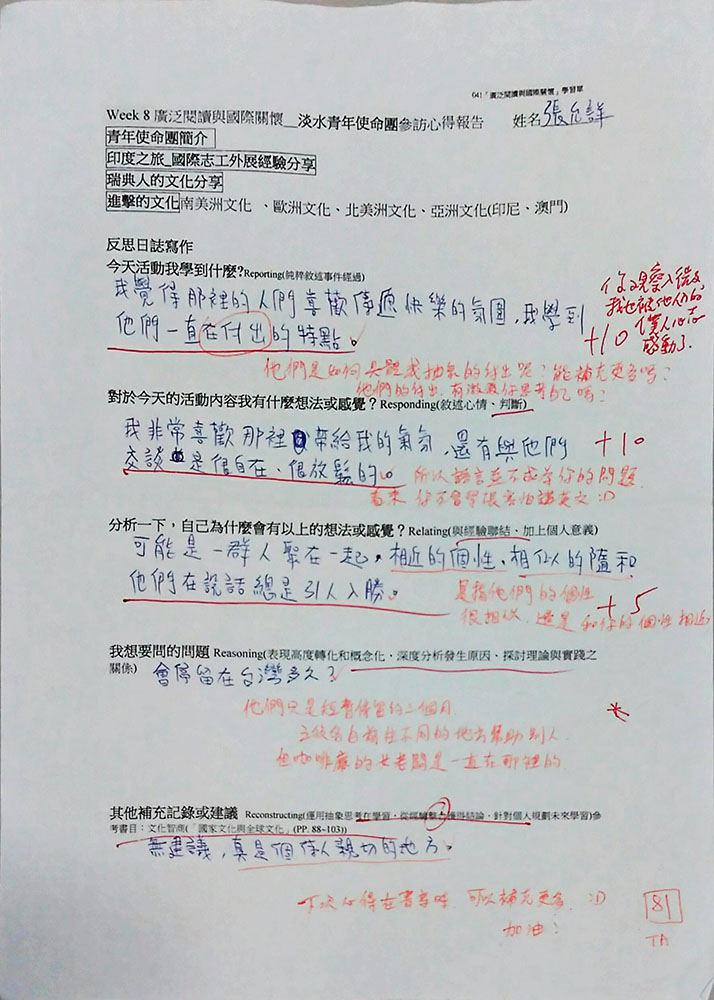 041「廣泛閱讀與國際關懷」學習單
Week 8 廣泛閱讀與國際關懷__淡水青年使命團參訪心得報告 姓名 張允詳
青年使命團簡介
印度之旅_國際志工外展經驗分享
瑞典人的文化分享
進擊的文化南美洲文化 、歐洲文化、北美洲文化、亞洲文化(印尼、澳門)
反思日誌寫作
今天活動我學到什麼?Reporting(純粹敘述事件經過)
我覺得那裡的人們喜歡傳遞快樂的氛圍,我學到
他們一直在付出的特點。
你觀察入微
我也被他們的
僕人心志
感動了
+10
他們是如何具體或抽象的付出呢?能補充更多嗎?
他們的付出,有激發你思考自己嗎?
對於今天的活動內容我有什麼想法或感覺?Responding(敘述心情、判斷)
我非常喜歡那裡帶給我的氣氛,還有與他們
+10
交談是很自在、很放鬆的。
所以語言並不成為你的問題
看來你不會學很害怕講英文 :D
分析一下,自己為什麼會有以上的想法或感覺?Relating(與經驗聯結、加上個人意義)
可能是一群人聚在一起,相近的個性、相似的隨和
他們在說話總是引人入勝。
是指他們的個性
+5
很相似,還是和你的個性相近
我想要問的問題 Reasoning(表現高度轉化和概念化,深度分析發生原因、探討理論與實踐之
關係)
會停留在台灣多久?
他們只是短暫停留約二個月
之後各自前往不同的地方幫助別人
但咖啡廳的女老闆是一直在那裡的
其他補充記錄或建議 Reconstructing(運用抽象思考在學習,從經驗整合獲得結論,針對個人規劃未來學習)參
考書目:文化智商(「國家文化與全球文化」(PP. 88~103))
無建議,真是個待人親切的地方。
下次心得在書寫時,可以補充更多 :D
加油!
81
TA